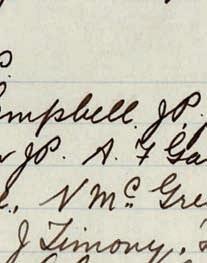 P.
ampbell. J.P.
JP. A. F Ga
N McGre
J Timony,